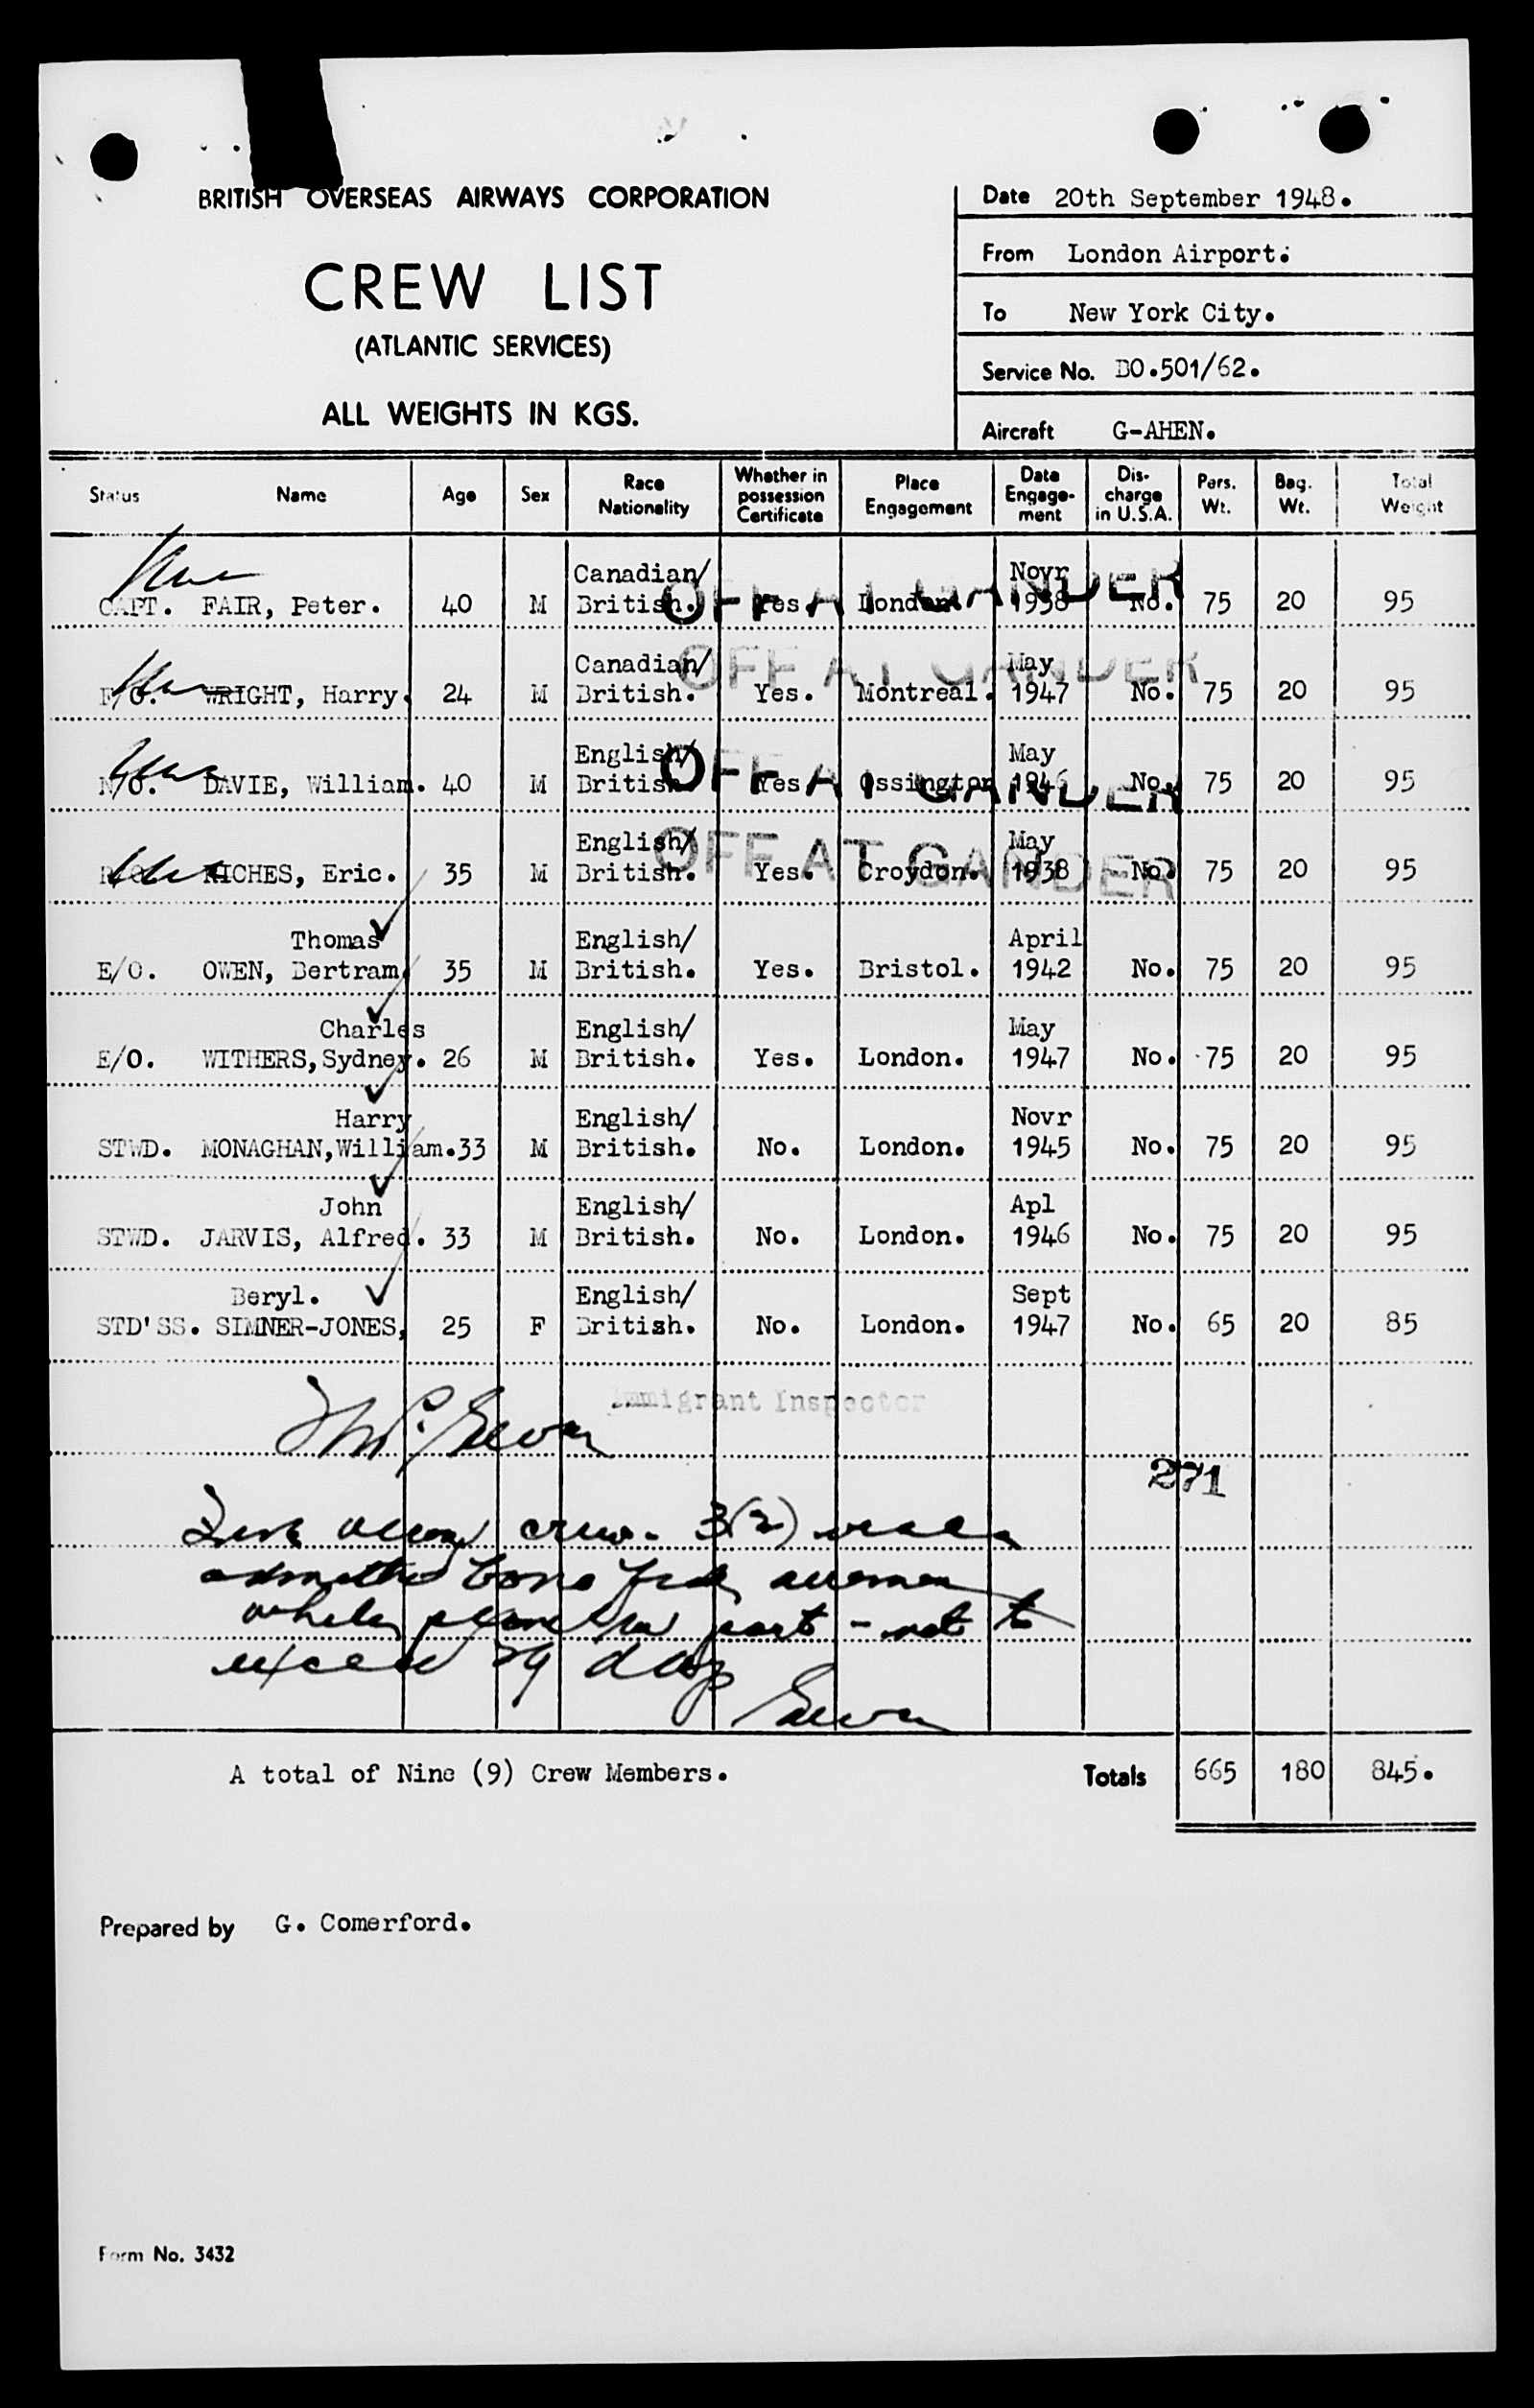 BRITISH OVERSEAS AIRWAYS CORPORATION
CREW LIST
(ATLANTIC SERVICES)
ALL WEIGHTS IN KGS.
Date 20th September 1948.
From London Airport.
To New York City.
Service No. BO.501/62.
Aircraft G-AHEN.
Status Name Age Sex Race Nationality Whether in possession Certificate Place Engagement Date Engage-ment Dis-charge in U.S.A. Pers. Wt. Bag. Wt. Total Weight
Canadian/ Novr
CAPT. FAIR, Peter. 40 M British. Yes. London. 1938 No. 75 20 95
OFF AT GANDER
Canadian/ May
F/O. WRIGHT, Harry. 24 M British. Yes. Montreal. 1947 No. 75 20 95
OFF AT GANDER
English/ May
N/O. DAVIE, William. 40 M British. Yes. Ossington 1946 No. 75 20 95
OFF AT GANDER
English/ May
RICHES, Eric. 35 M British. Yes. Croydon. 1938 No. 75 20 95
OFF AT GANDER
Thomas English/ April
E/O. OWEN, Bertram. 35 M British. Yes. Bristol. 1942 No. 75 20 95
Charles English/ May
E/O. WITHERS, Sydney. 26 M British. Yes. London. 1947 No. 75 20 95
Harry English/ Novr
STWD. MONAGHAN, William. 33 M British. No. London. 1945 No. 75 20 95
John English/ Apl
STWD. JARVIS, Alfred. 33 M British. No. London. 1946 No. 75 20 95
Beryl. English/ Sept
STD'SS. SIMNER-JONES, 25 F British. No. London. 1947 No. 65 20 85
Immigrant Inspector
271
crew - 3(2) visa
admitted bona fide airmen
while plane in port - not to
exceed 29 days
A total of Nine (9) Crew Members. Totals 665 180 845.
Prepared by G. Comerford.
Form No. 3432